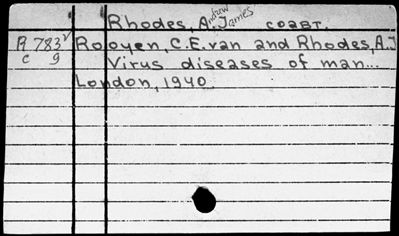 Rhodes, A.ndrew James соавт.
R 783v Rooyen, C.E. van and Rhodes, A.J
c 9 Virus diseases of man...
London, 1940.